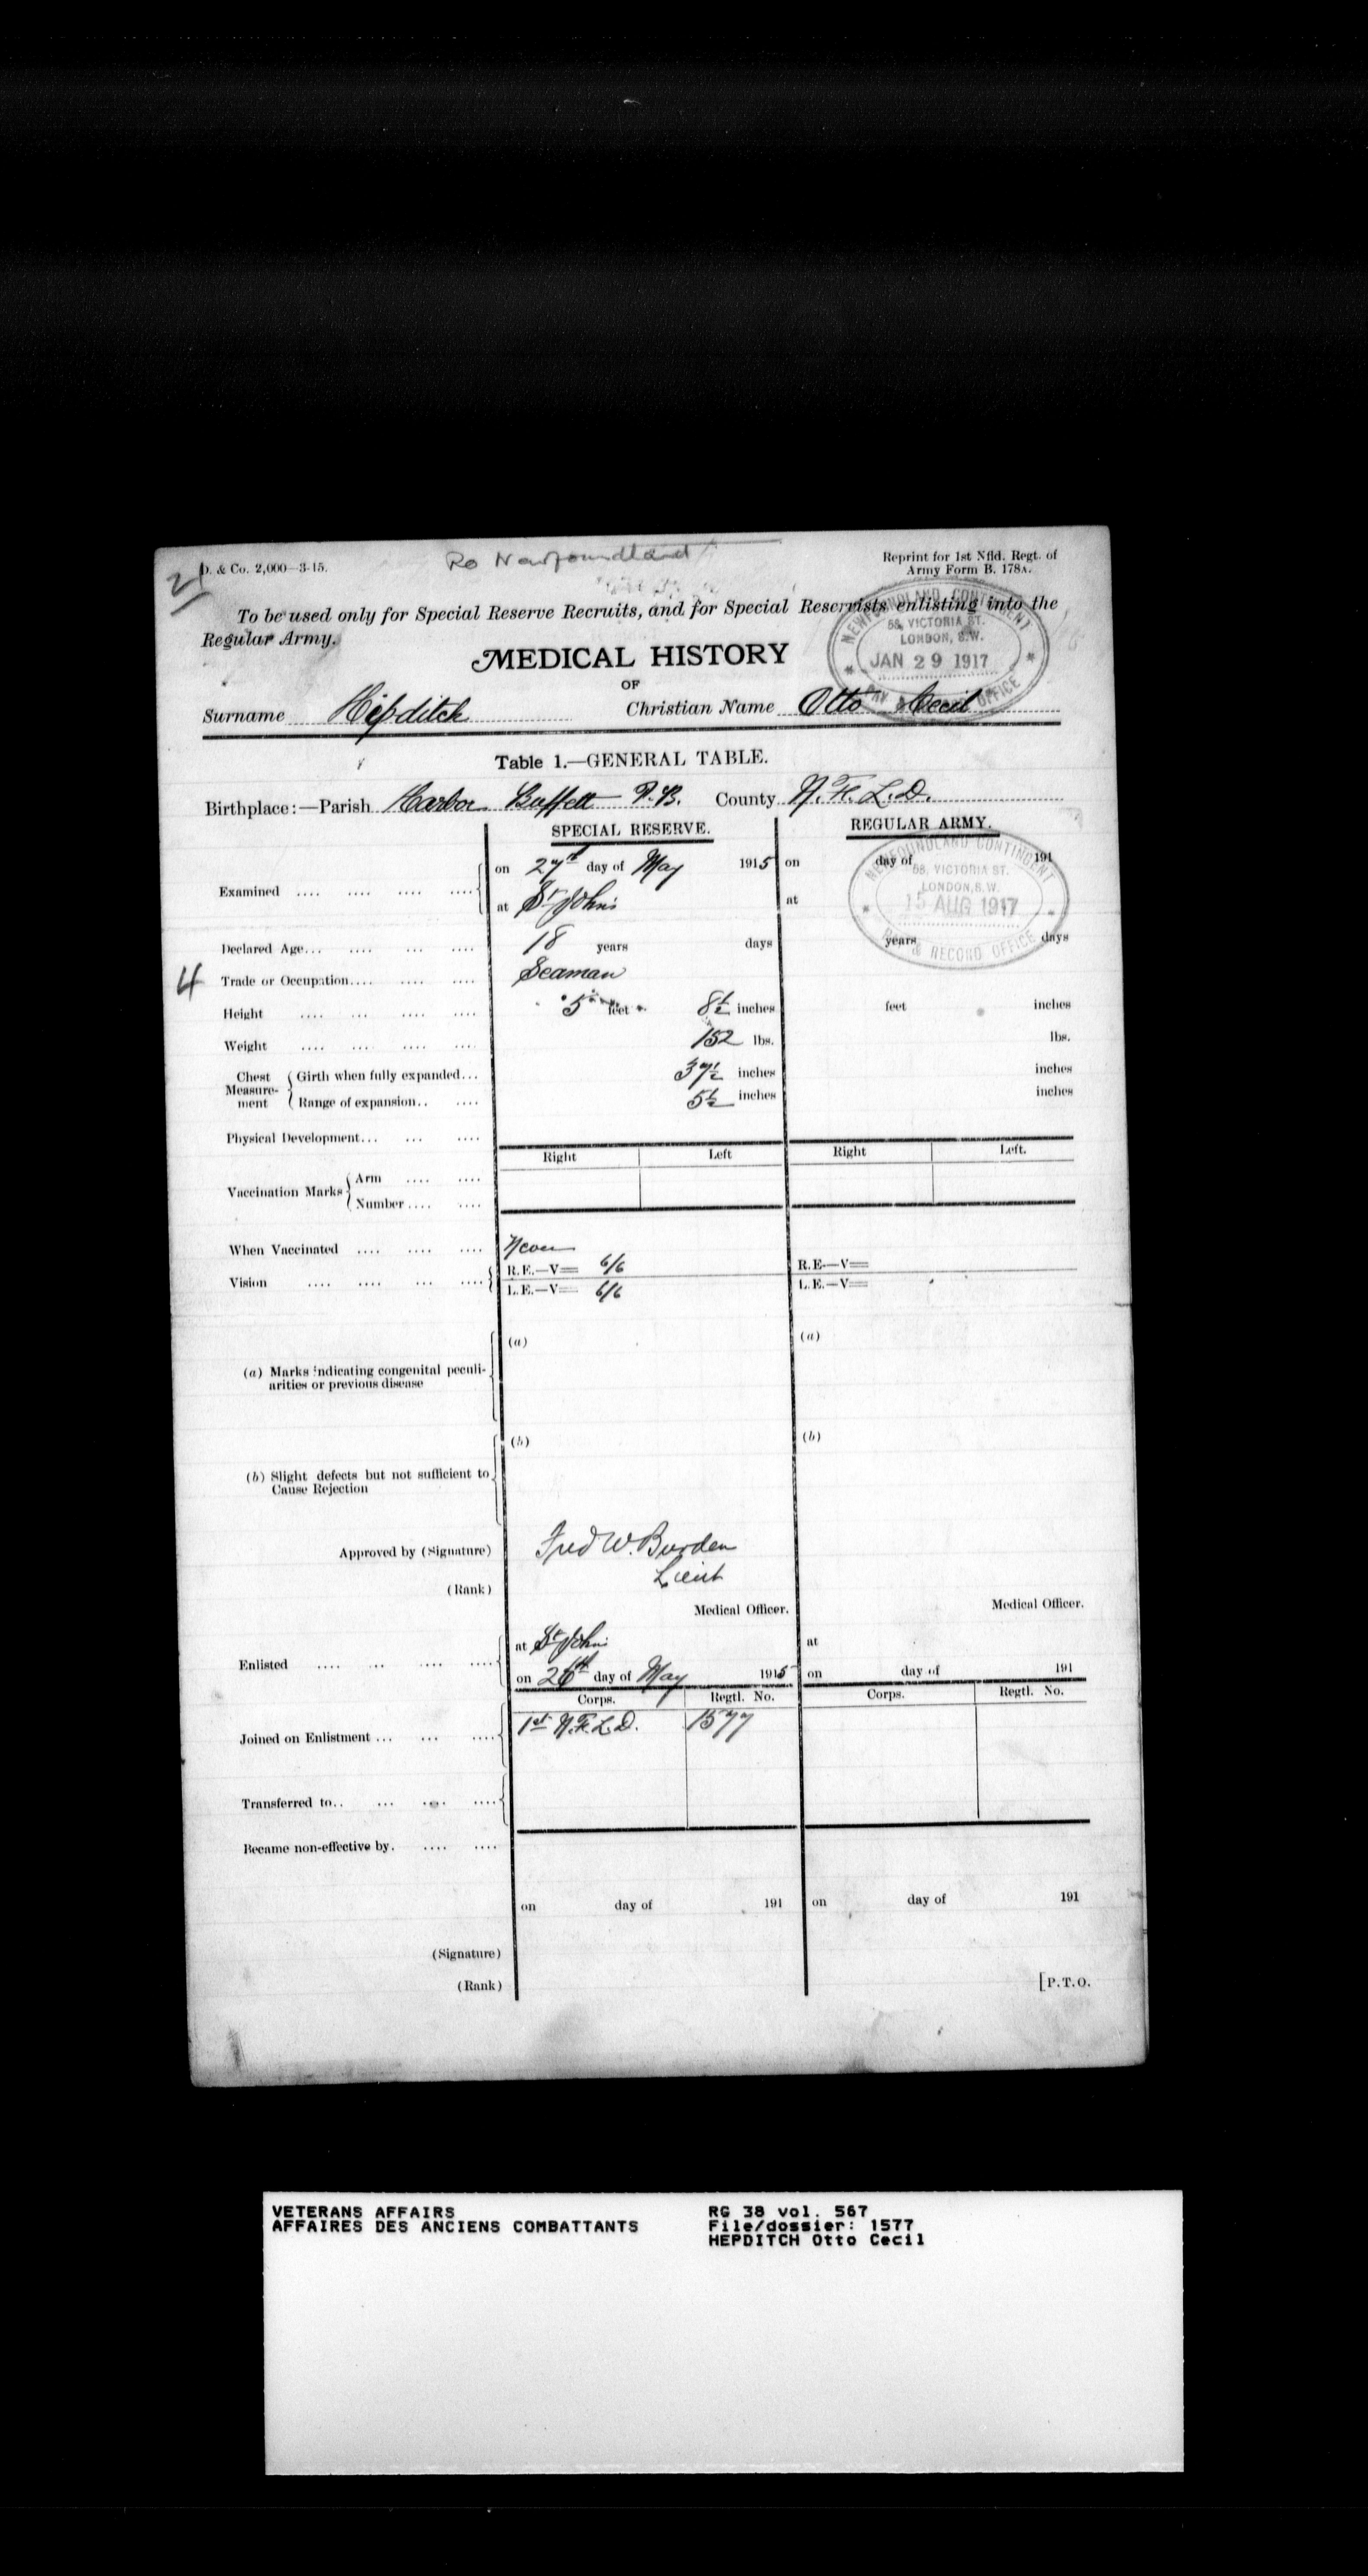 21
D. & Co. 2,000—3-15.
Ro Newfoundland
Reprint for 1st Nfld. Regt. of
Army Form B. 178A.
To be used only for Special Reserve Recruits, and for Special Reservists enlisting into the
Regular Army.
NEWFOUNDLAND CONTINGENT
58, VICTORIA ST.
LONDON, S.W.
JAN 29 1917
PAY & OFFICE
MEDICAL HISTORY
OF
Surname Hipditch Christian Name Otto Cecil
Table 1.—GENERAL TABLE.
Birthplace:—Parish Harbor Buffett P.B. County N.F.L.D.
SPECIAL RESERVE. REGULAR ARMY.
NEWFOUNDLAND CONTINGENT
58, VICTORIA ST.
LONDON, S.W.
15 AUG 1917
& RECORD OFFICE
Examined .... .... .... .... on 27th day of May 1915 on day of 191
at St John's at
Declared Age... .... ... .... 18 years days years days
4
Trade or Occupation.... .... .... Seaman
Height .... ... .... .... 5 feet 8½ inches feet inches
Weight .... .... .... .... 152 lbs. lbs.
Chest Measurement Girth when fully expanded... 37½ inches inches
Range of expansion.. .... 5½ inches inches
Physical Development... ... ....
Right Left Right Left.
Vaccination Marks Arm .... ....
Number .... ....
When Vaccinated .... .... .... Never
Vision .... .... ... .... R.E.—V= 6/6 R.E—V=
L.E.—V= 6/6 L.E.—V=
(a) (a)
(a) Marks indicating congenital peculi-
arities or previous disease
(b) (b)
(b) Slight defects but not sufficient to
Cause Rejection
Approved by (Signature) Fred W. Burden
Lieut
(Rank)
Medical Officer. Medical Officer.
at St John's at
Enlisted .... ... .... .... on 26th day of May 1915 on day of 191
Corps. Regtl. No. Corps. Regtl. No.
Joined on Enlistment ... ... .... 1st N.F.L.D. 1577
Transferred to.. ... .... ....
Became non-effective by. .... ....
on day of 191 on day of 191
(Signature)
(Rank)
[P.T.O.
VETERANS AFFAIRS RG 38 vol. 567
AFFAIRES DES ANCIENS COMBATTANTS File/dossier: 1577
HEPDITCH Otto Cecil